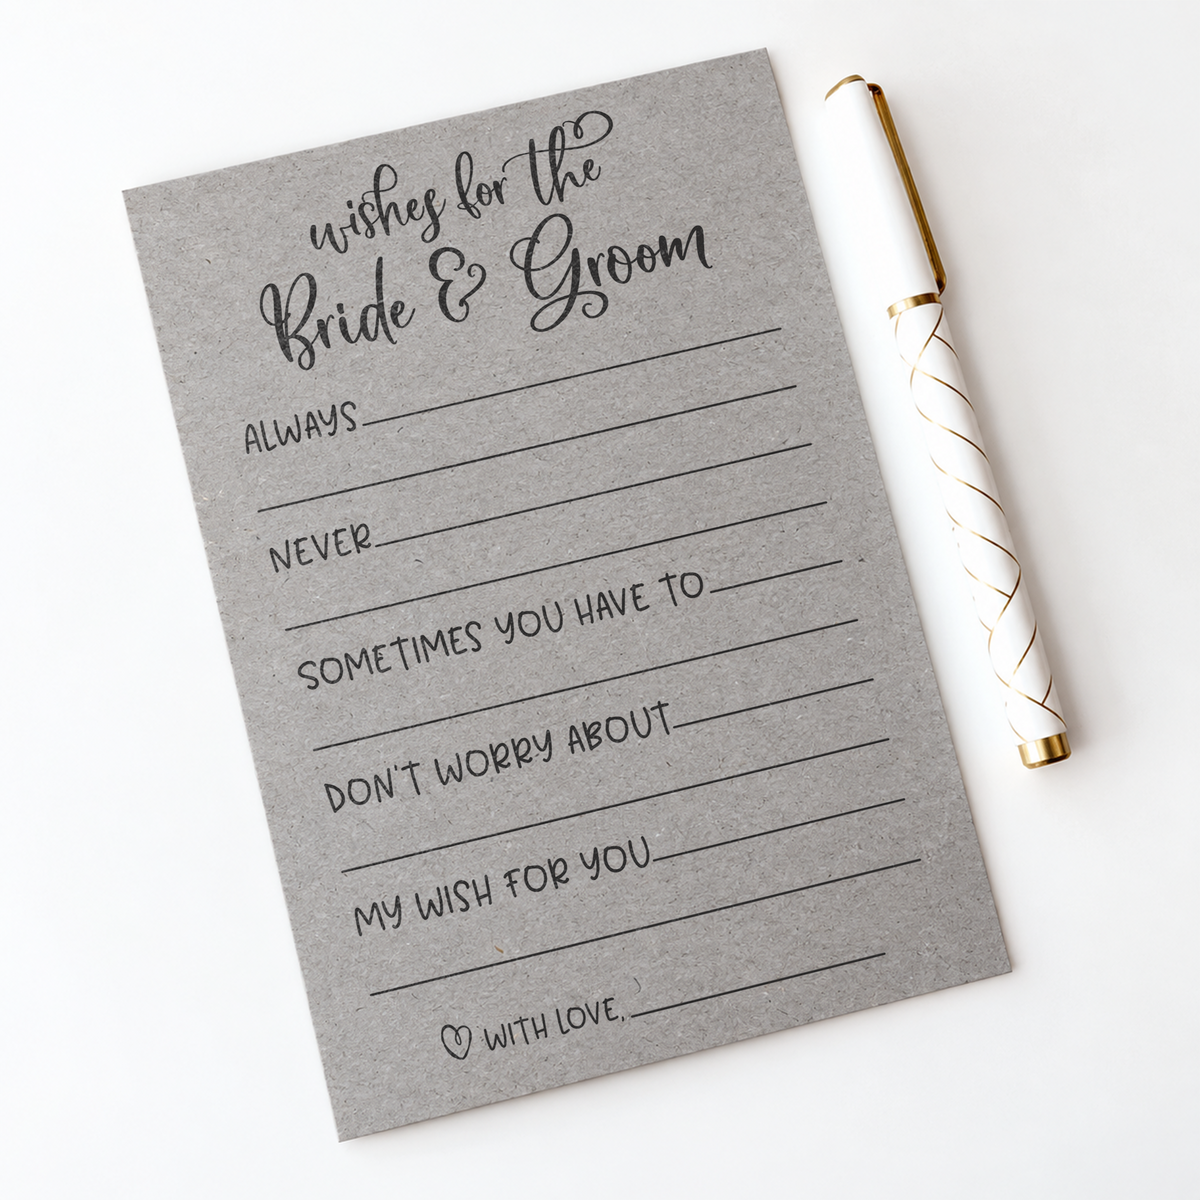 wishes for the
Bride & Groom
ALWAYS
NEVER
SOMETIMES YOU HAVE TO
DON'T WORRY ABOUT
MY WISH FOR YOU
WITH LOVE,